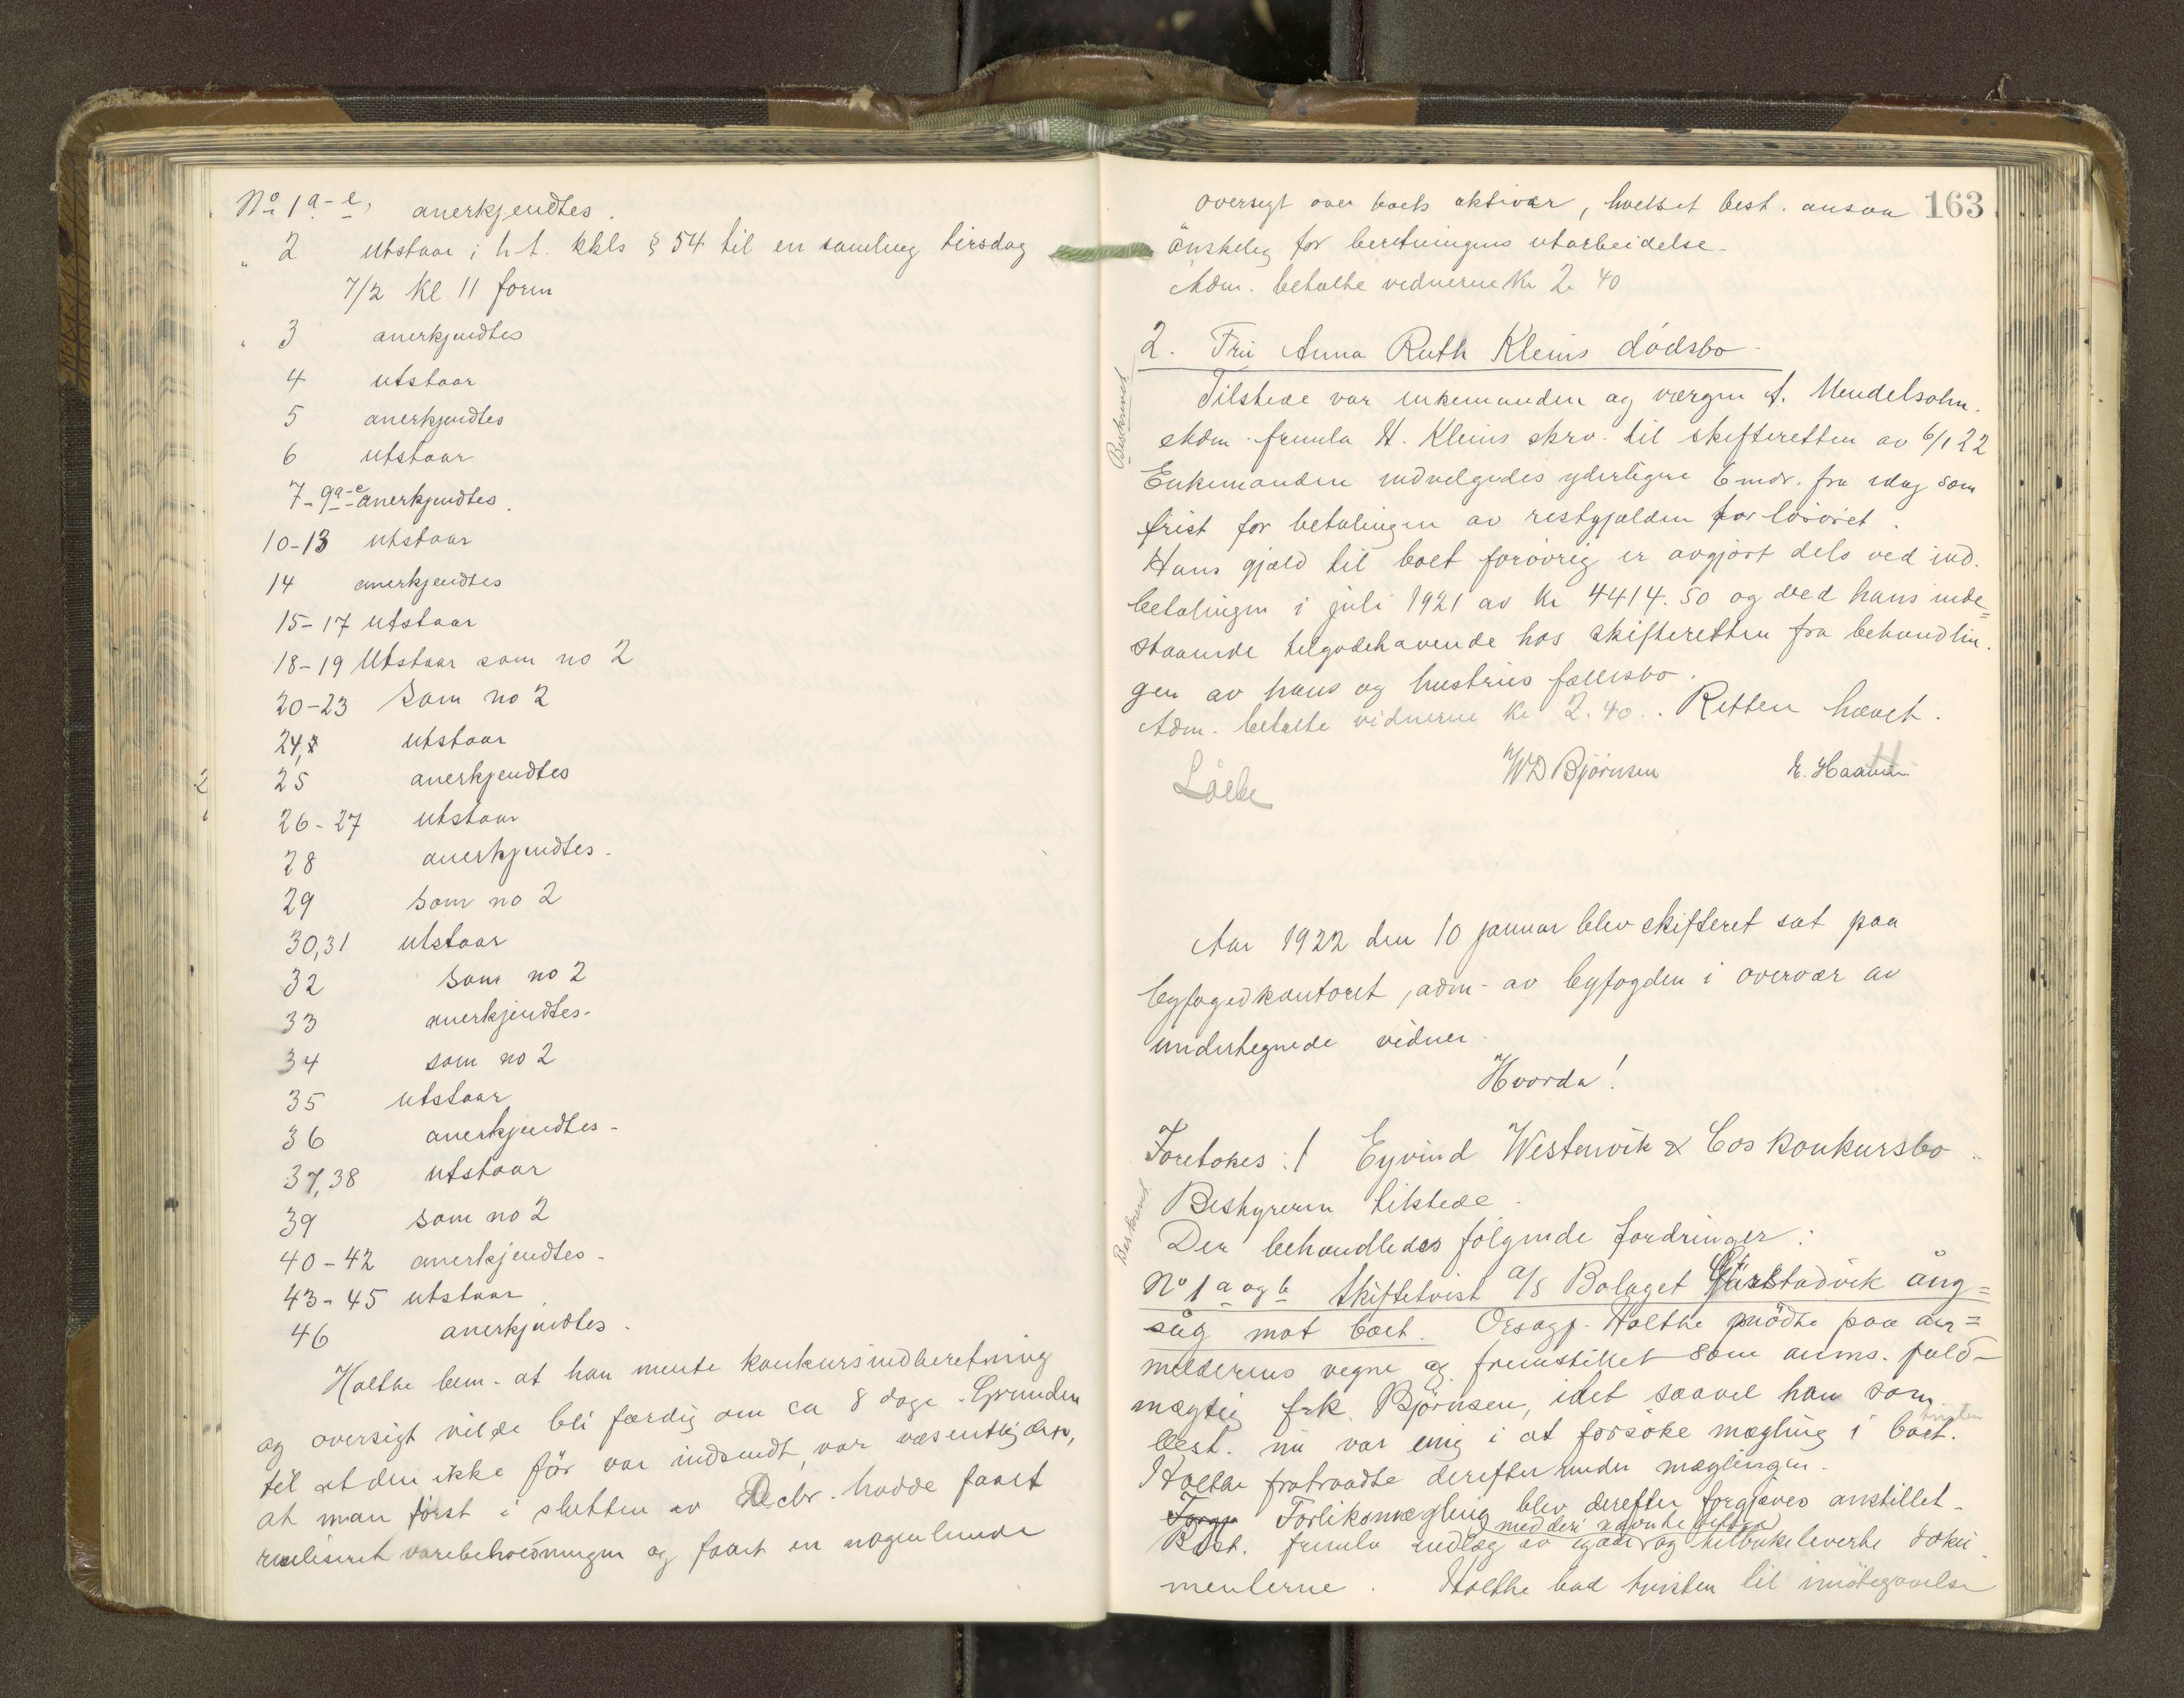 No 1 a-e, anerkjendtes.
" 2 utstaar i h.t. kkls § 54 til en samling tirsdag
7/2 kl 11 form
" 3 anerkjendtes
4 utstaar
5 anerkjendtes
6 utstaar
7-9a-e anerkjendtes.
10-13 utstaar
14 anerkjendtes
15-17 utstaar
18-19 Utstaar som no 2
20-23 som no 2
24, utstaar
25 anerkjendtes
26-27 utstaar
28 anerkjendtes.
29 som no 2
30,31 utstaar
32 som no 2
33 anerkjendtes.
34 som no 2
35 utstaar
36 anerkjendtes-
37,38 utstaar
39 som no 2
40-42 anerkjendtes-
43-45 utstaar
46 anerkjendtes.
Holthe bem. at han mente konkursindberetning
og oversigt vilde bli færdig om ca 8 dage. Grunden
til at den ikke før var indsendt, var væsentlig den,
at man først i slutten av Decbr. hadde faaet
realiseret varebeholdningen og faaet en nogenlunde
163
oversigt over boets aktiver, hvilket best. ansaa
ønskelig for beretningens utarbeidelse-
Adm. betalte vidnerne kr 2.40
2. Fru Anna Ruth Kleins dödsbo-
Beskrevet
Tilstede var enkemanden og vergen A. Mendelsohn.
Adm. fremla H. Kleins skrv. til skifteretten av 6/1 22
Enkemanden indvilgedes yderligere 6 mdr. fra idag som
frist for betalingen av restgjælden for løsøret.
Hans gjæld til boet forøvrig er avgjort dels ved ind-
betalingen i juli 1921 av kr 4414.50 og ved hans inde=
staaende tilgodehavende hos skifteretten fra behandlin-
gen av hans og hustrus fællesbo.
Adm. betalte vidnerne kr 2.40. Retten hævet.
WD Björnsen
Aar 1922 den 10 januar blev skifteret sat paa
byfogedkontoret, adm. av byfogden i overvær av
undertegnede vidner.
Hvorda!
Foretokes: 1 Eyvind Westenvik & Cos konkursbo
Beskrevet
Bestyreren tilstede.
Der behandledes følgende fordringer:
No 1 a og b Skiftetvist a/s Bolaget ång=
såg mot boet. Orsagf. Holthe mödte paa an=
melderens vegne og fremstillet som anms. fuld-
mægtig frk. Björnsen, idet saavel han som
best. nu var enig i at forsöke mægling i tvisten
boet.
Holthe fratraadte derefter under mæglingen.
Forliksmægling blev derefter forgjæves anstillet-
med deri nævnte
Best. fremla indlæg av igaar og tilbakeleverte doku-
menterne. Holthe bad tvisten til imøtegaaelse